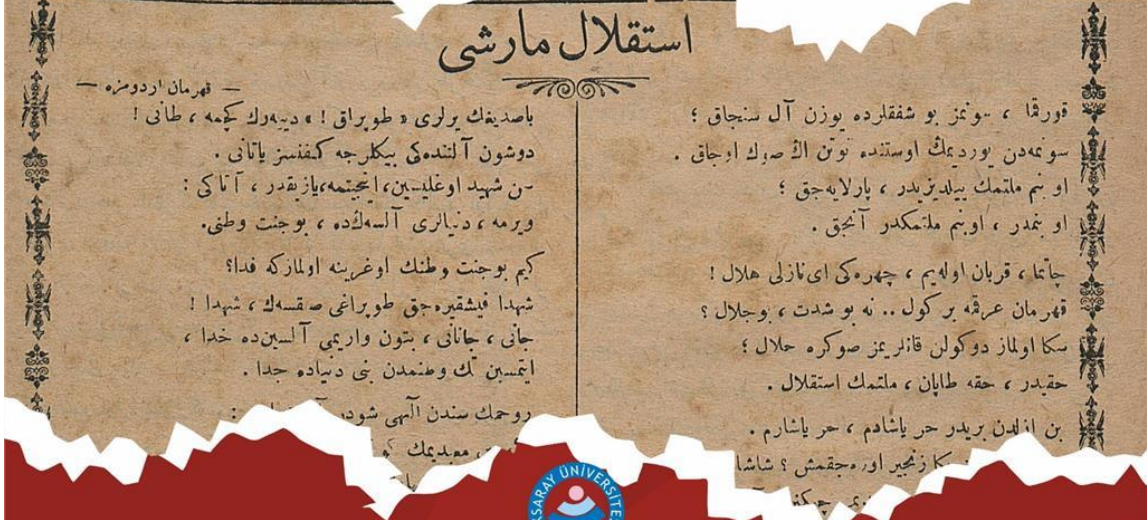 استقلال مارشی
— قهرمان اردومزه —
قورقما ، سونمز بو شفقلرده یوزن آل سنجاق ؛
سونمەدن یوردیمڭ اوستنده توتن اڭ صوڭ اوجاق .
او بنم ملتمڭ ییلدیزیدر ، پارلایەجق ؛
او بنمدر ، او بنم ملتمڭدر آنجق .
چاتما ، قربان اولەیم ، چهرەڭی ای نازلی هلال !
قهرمان عرقمە بر كول .. نه بو شدت ، بوجلال ؟
سڭا اولماز دوكولن قانلریمز صوڭره حلال ؛
حقیدر ، حقە طاپان ، ملتمڭ استقلال .
بن ازلدن بریدر حر یاشادم ، حر یاشارم .
بڭا زنجیر اورەجقمش ؟ شاشا
باصدیغڭ یرلری « طوپراق ! » دییەرك كچمە ، طانی !
دوشون آلتنده‌كی بیڭلرجه كفنسز یاتانی .
سن شهید اوغلیسین، اینجیتمە، یازیقدر ، آتاڭی :
ویرمە ، دنیالری آلسەڭده ، بوجنت وطنی.
كیم بوجنت وطنڭ اوغرینه اولمازكه فدا؟
شهدا فیشقیرەجق طوپراغی صیقسەڭ ، شهدا !
جانی ، جانانی ، بتون واریمی آلسین‌ده خدا ،
ایتمسین تك وطنمدن بنی دنیاده جدا .
روحمڭ سندن آلهی شودر
معبدیمڭ
AKSARAY ÜNİVERSİTE